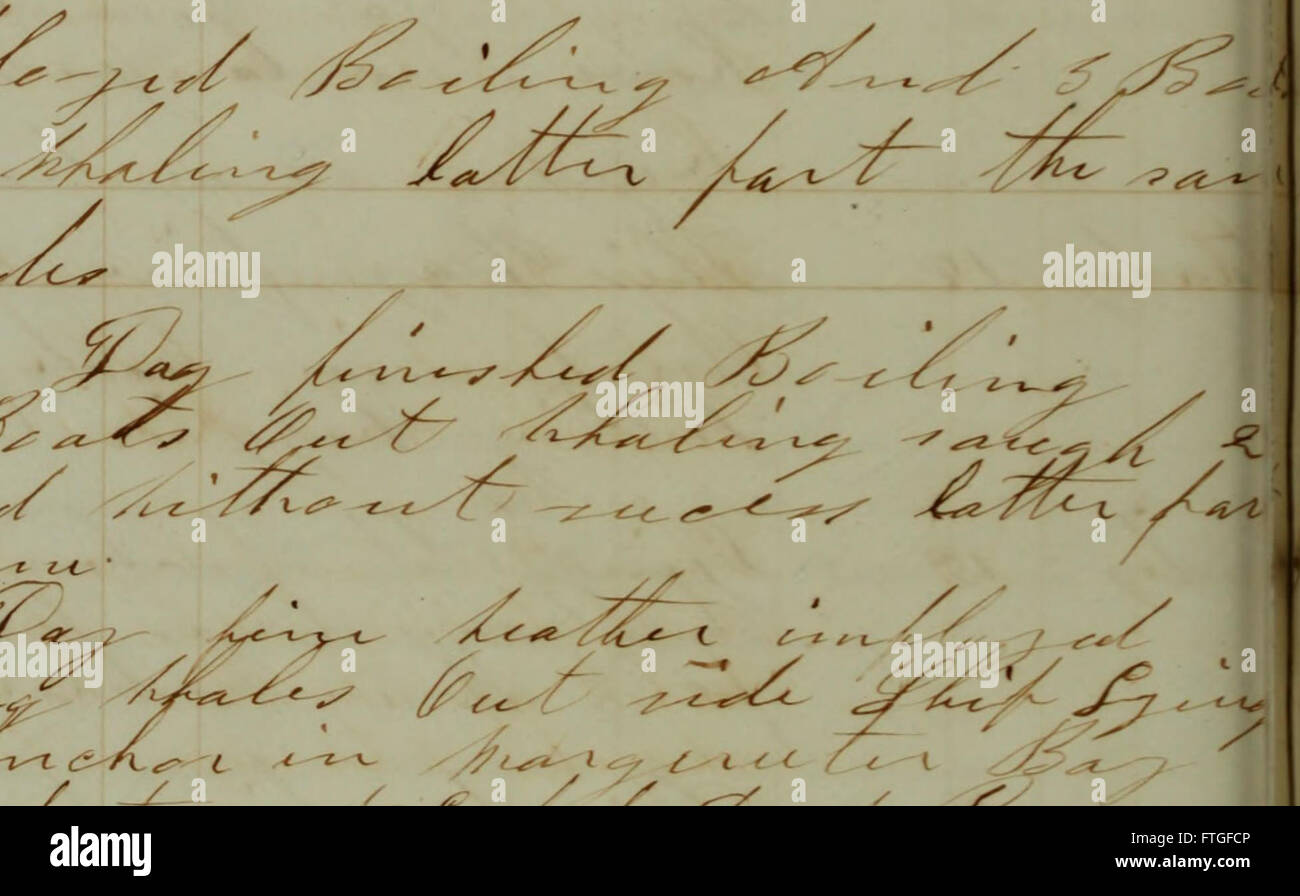 loyed Boiling And 3 Boa
whaling latter part the sam
des
Day finished Boiling
Boats Out whaling saugh 2
d without sucess latter par
me
Day fine weather imployed
g whales Out side Ship Lying
nchor in Margereter Bay
alamy stock photo
alamy
Image ID: FTGFCP
www.alamy.com